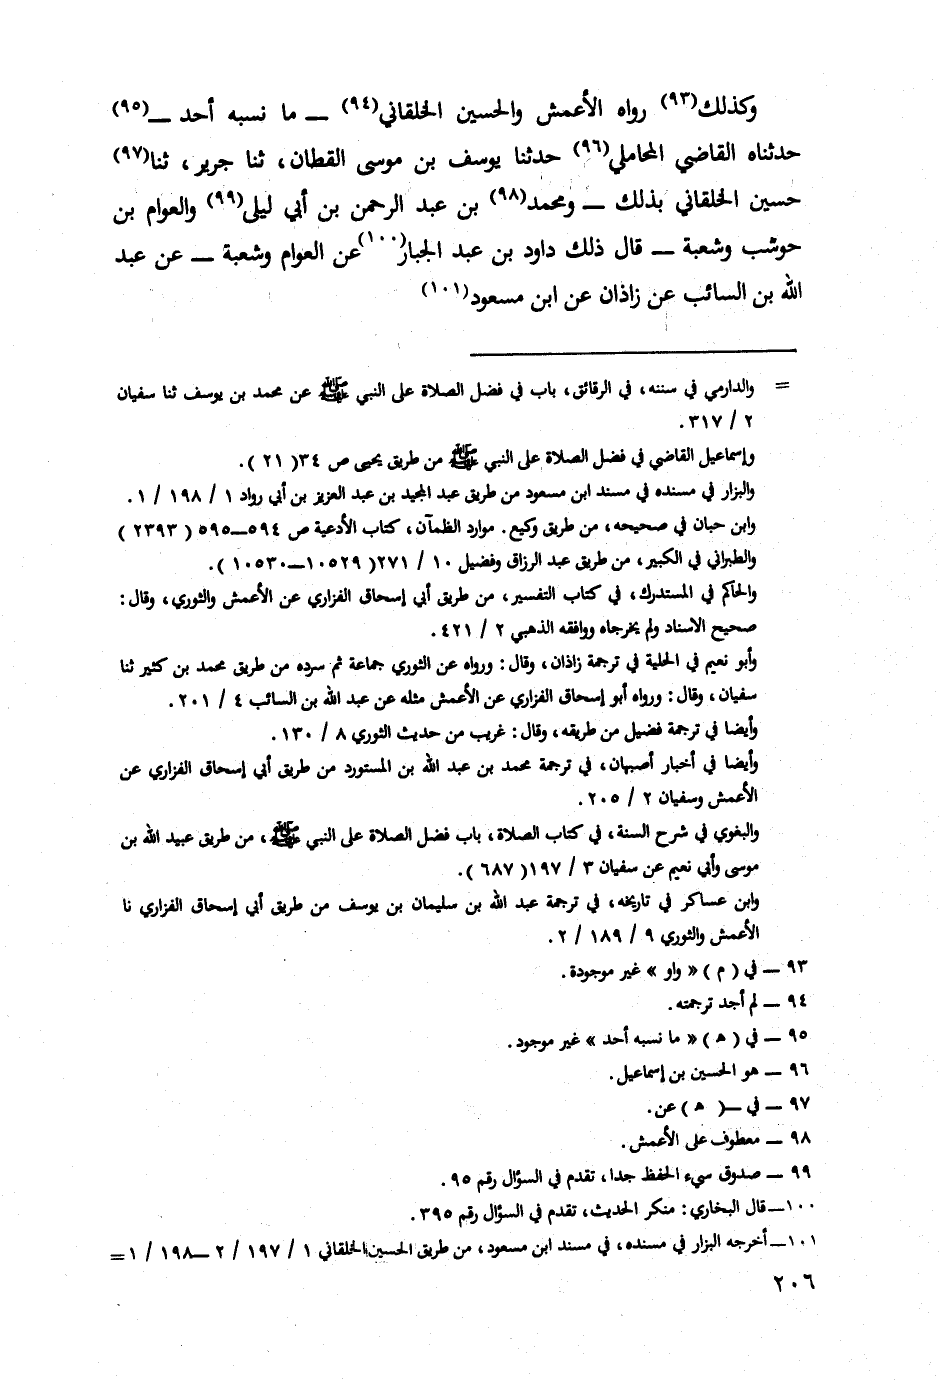 وكذلك(٩٣) رواه الأعمش والحسين الخلقاني(٩٤) ــ ما نسبه أحد ــ(٩٥)
حدثناه القاضي المحاملي(٩٦) حدثنا يوسف بن موسى القطان، ثنا جرير، ثنا(٩٧)
حسين الخلقاني بذلك ــ ومحمد(٩٨) بن عبد الرحمن بن أبي ليلى(٩٩) والعوام بن
حوشب وشعبة ــ قال ذلك داود بن عبد الجبار(١٠٠) عن العوام وشعبة ــ عن عبد
الله بن السائب عن زاذان عن ابن مسعود(١٠١)
= والدارمي في سننه، في الرقائق، باب في فضل الصلاة على النبي ﷺ عن محمد بن يوسف ثنا سفيان
٢ / ٣١٧.
وإسماعيل القاضي في فضل الصلاة على النبي ﷺ من طريق يحيى ص ٣٤( ٢١ ).
والبزار في مسنده في مسند ابن مسعود من طريق عبد المجيد بن عبد العزيز بن أبي رواد ١ / ١٩٨ / ١.
وابن حبان في صحيحه، من طريق وكيع. موارد الظمآن، كتاب الأدعية ص ٥٩٤ــ٥٩٥ ( ٢٣٩٣ )
والطبراني في الكبير، من طريق عبد الرزاق وفضيل ١٠ / ٢٧١( ١٠٥٢٩ــ١٠٥٣٠ ).
والحاكم في المستدرك، في كتاب التفسير، من طريق أبي إسحاق الفزاري عن الأعمش والثوري، وقال:
صحيح الاسناد ولم يخرجاه ووافقه الذهبي ٢ / ٤٢١.
وأبو نعيم في الحلية في ترجمة زاذان، وقال: ورواه عن الثوري جماعة ثم سرده من طريق محمد بن كثير ثنا
سفيان، وقال: ورواه أبو إسحاق الفزاري عن الأعمش مثله عن عبد الله بن السائب ٤ / ٢٠١.
وأيضا في ترجمة فضيل من طريقه، وقال: غريب من حديث الثوري ٨ / ١٣٠.
وأيضا في أخبار أصبهان، في ترجمة محمد بن عبد الله بن المستورد من طريق أبي إسحاق الفزاري عن
الأعمش وسفيان ٢ / ٢٠٥.
والبغوي في شرح السنة، في كتاب الصلاة، باب فضل الصلاة على النبي ﷺ، من طريق عبيد الله بن
موسى وأبي نعيم عن سفيان ٣ / ١٩٧( ٦٨٧ ).
وابن عساكر في تاريخه، في ترجمة عبد الله بن سليمان بن يوسف من طريق أبي إسحاق الفزاري نا
الأعمش والثوري ٩ / ١٨٩ / ٢.
٩٣ ــ في ( م ) « واو » غير موجودة.
٩٤ ــ لم أجد ترجمته.
٩٥ ــ في ( ﻫ ) « ما نسبه أحد » غير موجود.
٩٦ ــ هو الحسين بن إسماعيل.
٩٧ ــ في ــ( ﻫ ) عن.
٩٨ ــ معطوف على الأعمش.
٩٩ ــ صدوق سيء الحفظ جدا، تقدم في السؤال رقم ٩٥.
١٠٠ــ قال البخاري: منكر الحديث، تقدم في السؤال رقم ٣٩٥.
١٠١ــ أخرجه البزار في مسنده، في مسند ابن مسعود، من طريق الحسين الخلقاني ١ / ١٩٧ / ٢ ــ١٩٨ / ١ =
٢٠٦